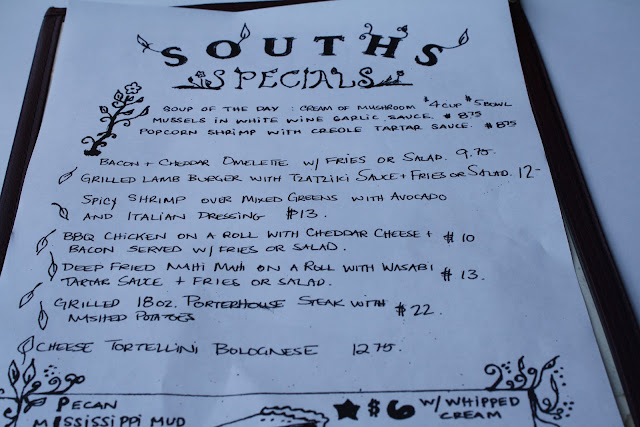 SOUTHS
SPECIALS
SOUP OF THE DAY : CREAM OF MUSHROOM $4 CUP $5 BOWL
MUSSELS IN WHITE WINE GARLIC SAUCE. $ 8.75
POPCORN SHRIMP WITH CREOLE TARTAR SAUCE. $8.75
BACON + CHEDDAR OMELETTE W/ FRIES OR SALAD. 9.75.
GRILLED LAMB BURGER WITH TZATZIKI SAUCE + FRIES OR SALAD. 12-
SPICY SHRIMP OVER MIXED GREENS WITH AVOCADO
AND ITALIAN DRESSING $13.
BBQ CHICKEN ON A ROLL WITH CHEDDAR CHEESE + $10
BACON SERVED W/ FRIES OR SALAD.
DEEP FRIED MAHI MAHI ON A ROLL WITH WASABI $13.
TARTAR SAUCE + FRIES OR SALAD.
GRILLED 18oz. PORTERHOUSE STEAK WITH $22.
MASHED POTATOES
CHEESE TORTELLINI BOLOGNESE 12.75.
PECAN $6 W/ WHIPPED
MISSISSIPPI MUD CREAM